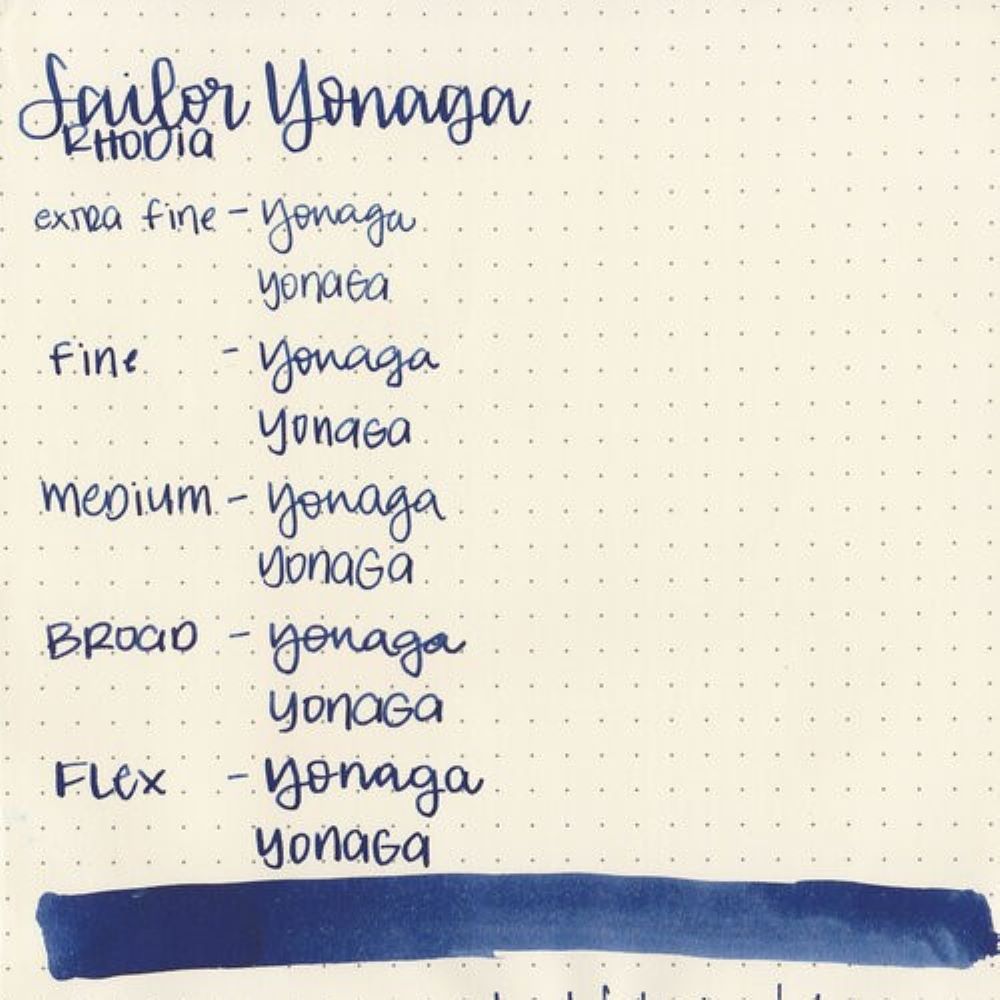 Sailor Yonaga
RHODIA
extra fine - Yonaga
yonaGa
Fine - Yonaga
YonaGa
meDium - Yonaga
YonaGa
BROaD - Yonaga
YonaGa
FLex - Yonaga
YonaGa